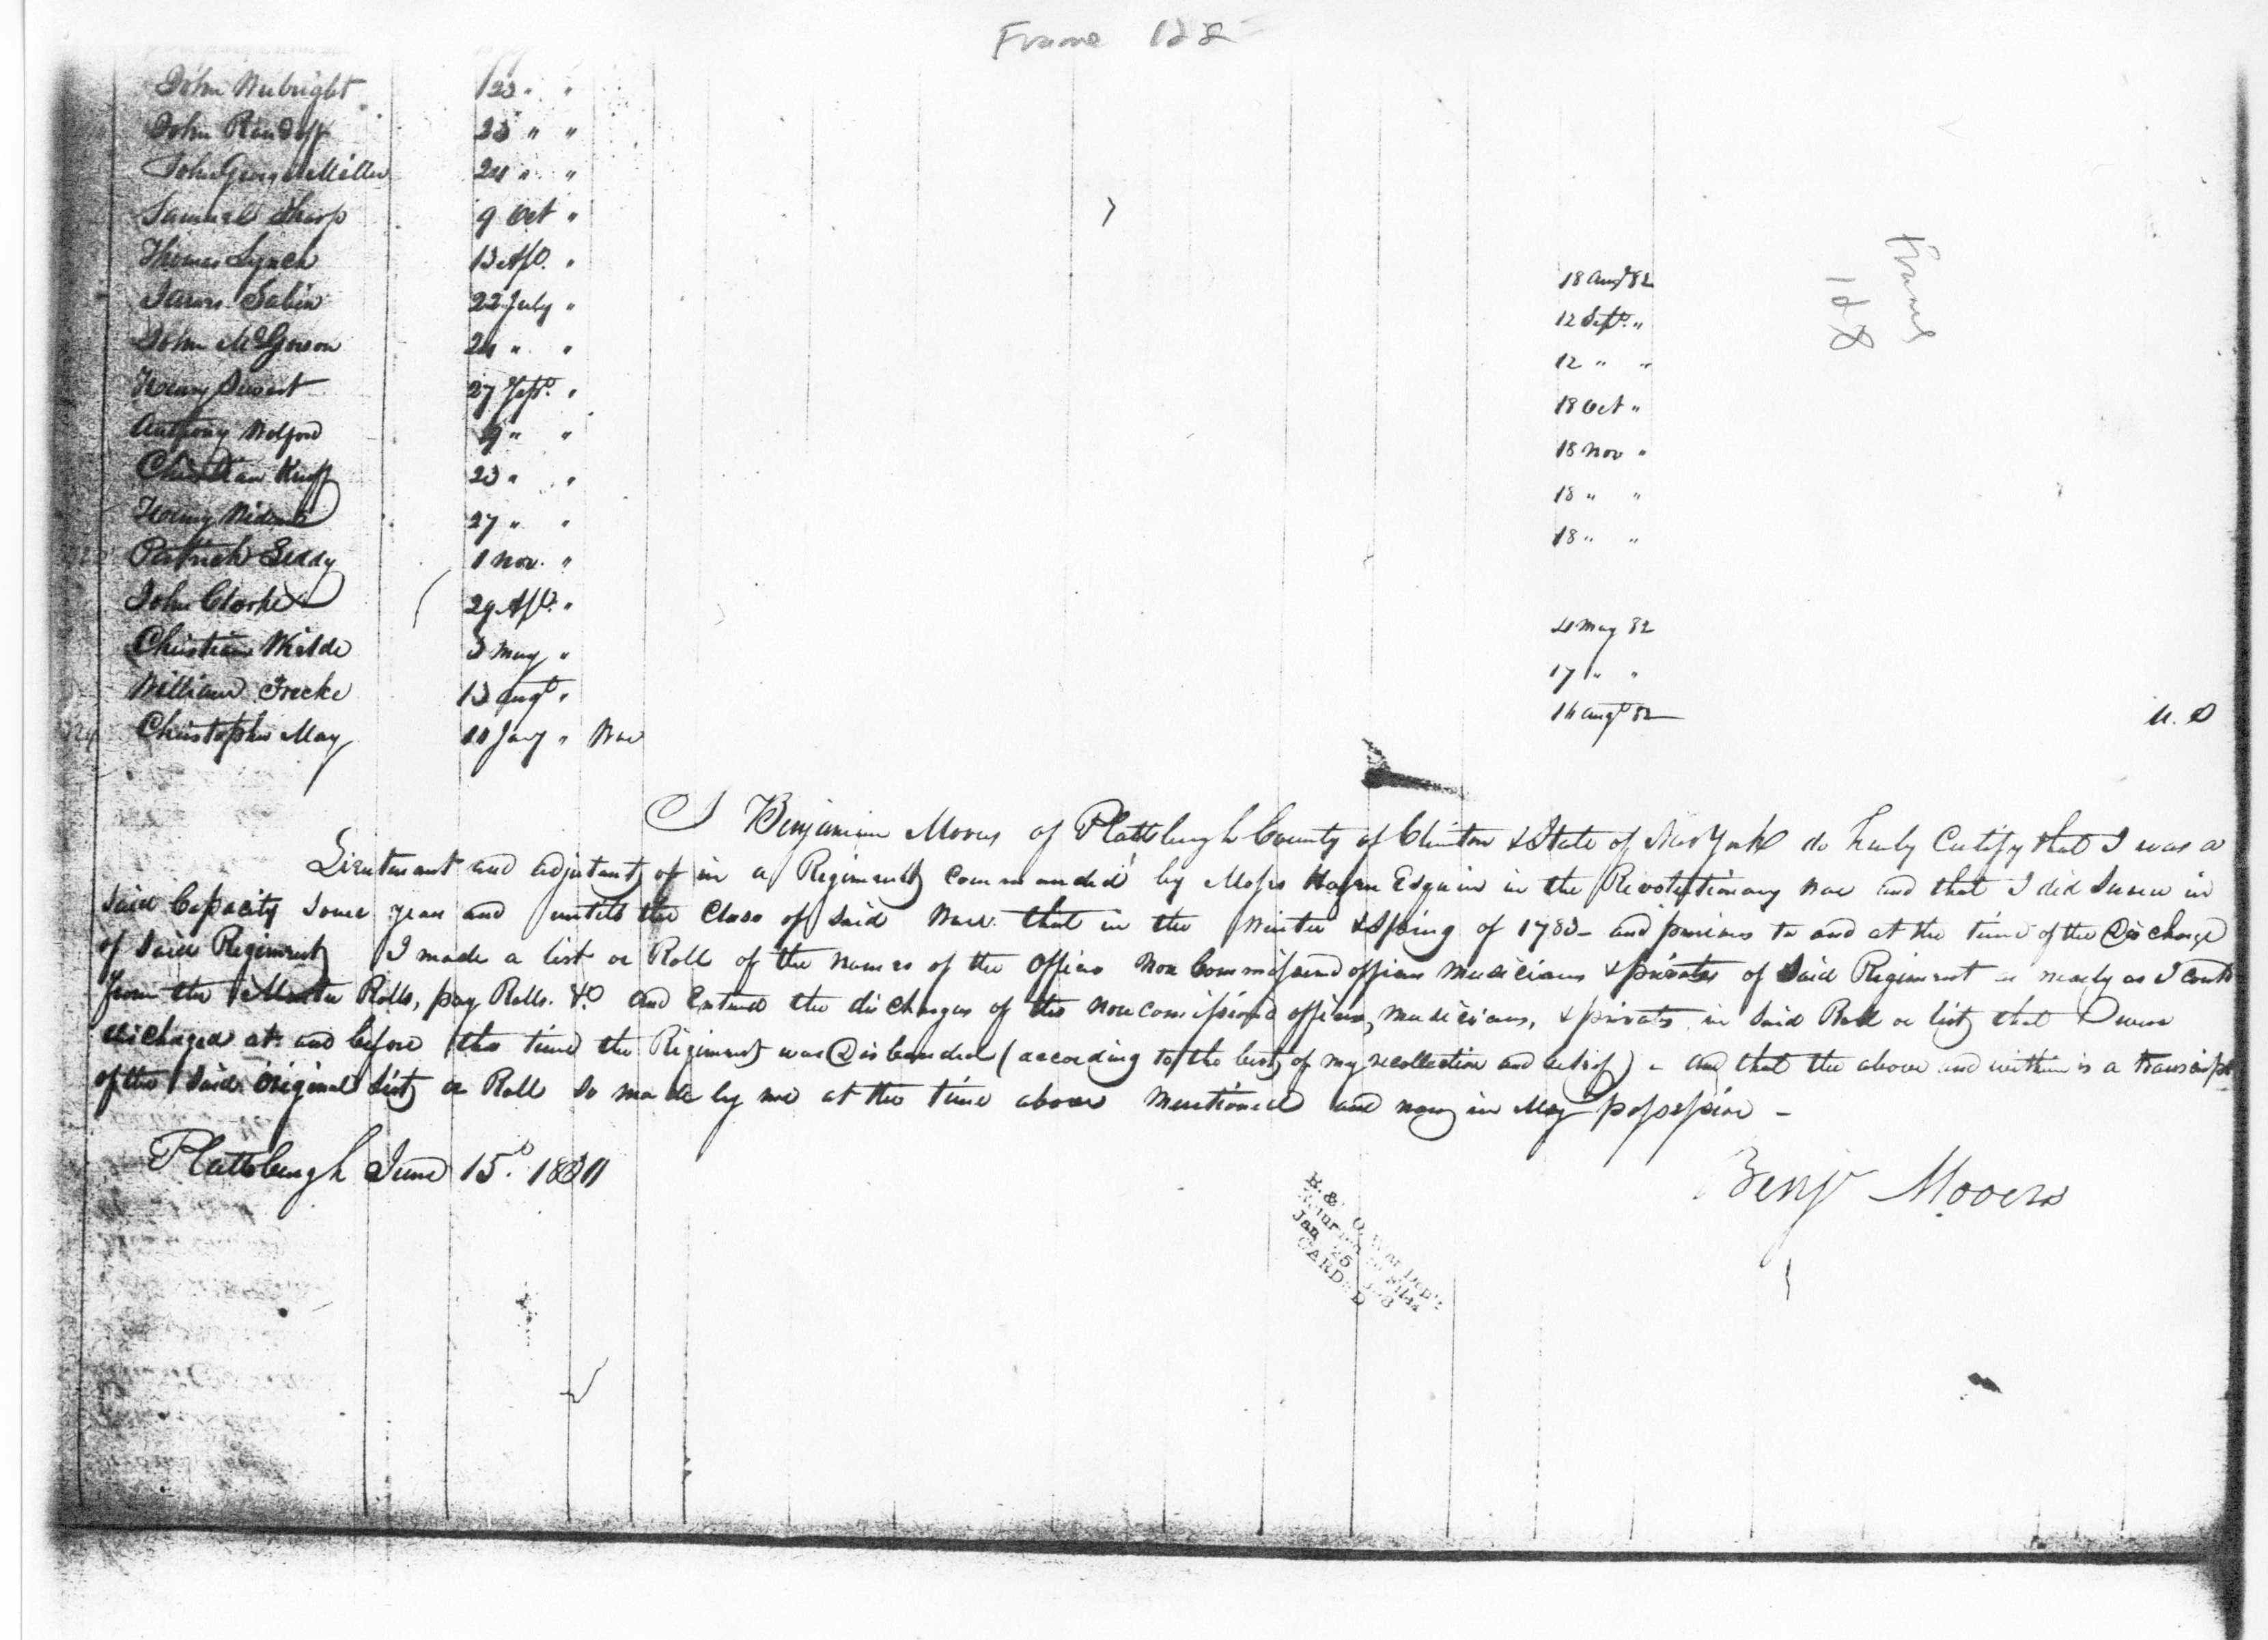 Frame 128
John Weibright 23 " "
John Randolf 23 " "
John George Miller 24 " "
Samuel Sharp 9 Oct "
Thomas Lynch 13 Apl. " 18 Augt 82
James Sabin 22 July " 12 Sept. "
John McGowon 24 " " 12 " "
Henry Stewart 27 Sept. " 18 Oct "
Anthony Welford 9 " " 18 Nov "
Christian Kuff 23 " " 18 " "
Henry 27 " " 18 " "
Patrick Leddy 1 Nov. "
John Clarke 29 Apl. " 4 May 82
Christian Wilde 3 May " 17 " "
William Frecke 13 Augt " 14 Augt 82
Christopher May 10 Jany " War U. S
Frame
128
I Benjamin Mooers of Plattsburgh County of Clinton & State of New York do hereby Certify that I was a
Lieutenant and adjutant of in a Regiment commanded by Moses Hazen Esquire in the Revolutionary War and that I did Serve in
said Capacity some years and untill the Close of said War. that in the Winter & Spring of 1783 - and previous to and at the time of the Discharge
of said Regiment I made a list or Roll of the names of the officers Non Commissiend officers Musicians & privates of Said Regiment as nearly as I could
from the Muster Rolls, pay Rolls. &c and Entered the discharges of the non comissioned officers, musicians, & privates in Said Roll or list that were
discharged at and before the time the Regiment was Disbanded (according to the best of my recollection and belief) - and that the above and within is a transcript
of the said original List or Roll so made by me at the time above mentioned and now in My possession -
Plattsburgh June 15th 1831
Benj Mooers
R. & War Dep't
Returned to Files
Jan 25
CARDED